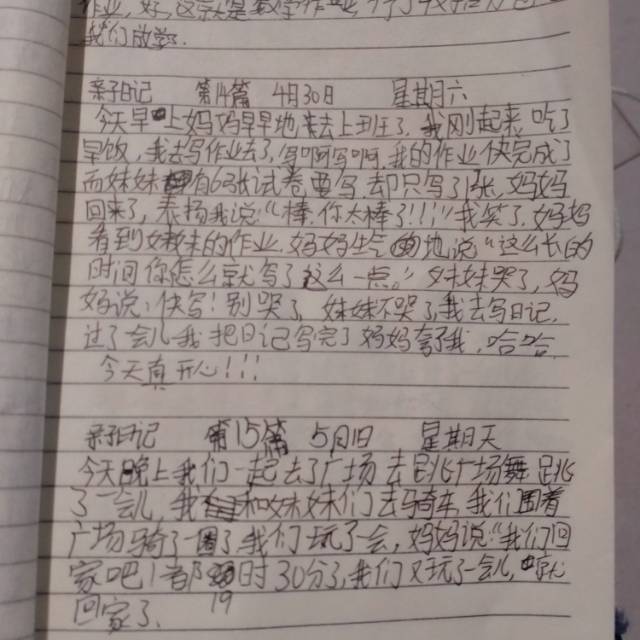 我们放学.
亲子日记 第14篇 4月30日 星期六
今天早上妈妈早早地来去上班了,我刚起来吃了
早饭,我去写作业去了,写啊写啊,我的作业快完成了
而妹妹有6张试卷要写却只写了1张,妈妈
回来了,表扬我说:“棒你太棒了!!!”我笑了,妈妈
看到妹妹的作业,妈妈生气地说“这么长的
时间你怎么就写了这么一点。”妹妹哭了,妈
妈说:快写!别哭了,妹妹不哭了我去写日记,
过了会儿我把日记写完了妈妈夸了我,哈哈,
今天真开心!!!
亲子日记 第15篇 5月1日 星期天
今天晚上我们一起去了广场去跳广场舞跳
了一会儿,我和妹妹们去骑车,我们围着
广场骑了一圈了,我们玩了一会,妈妈说:“我们回
家吧!都19时30分了,我们又玩了一会儿
回家了.